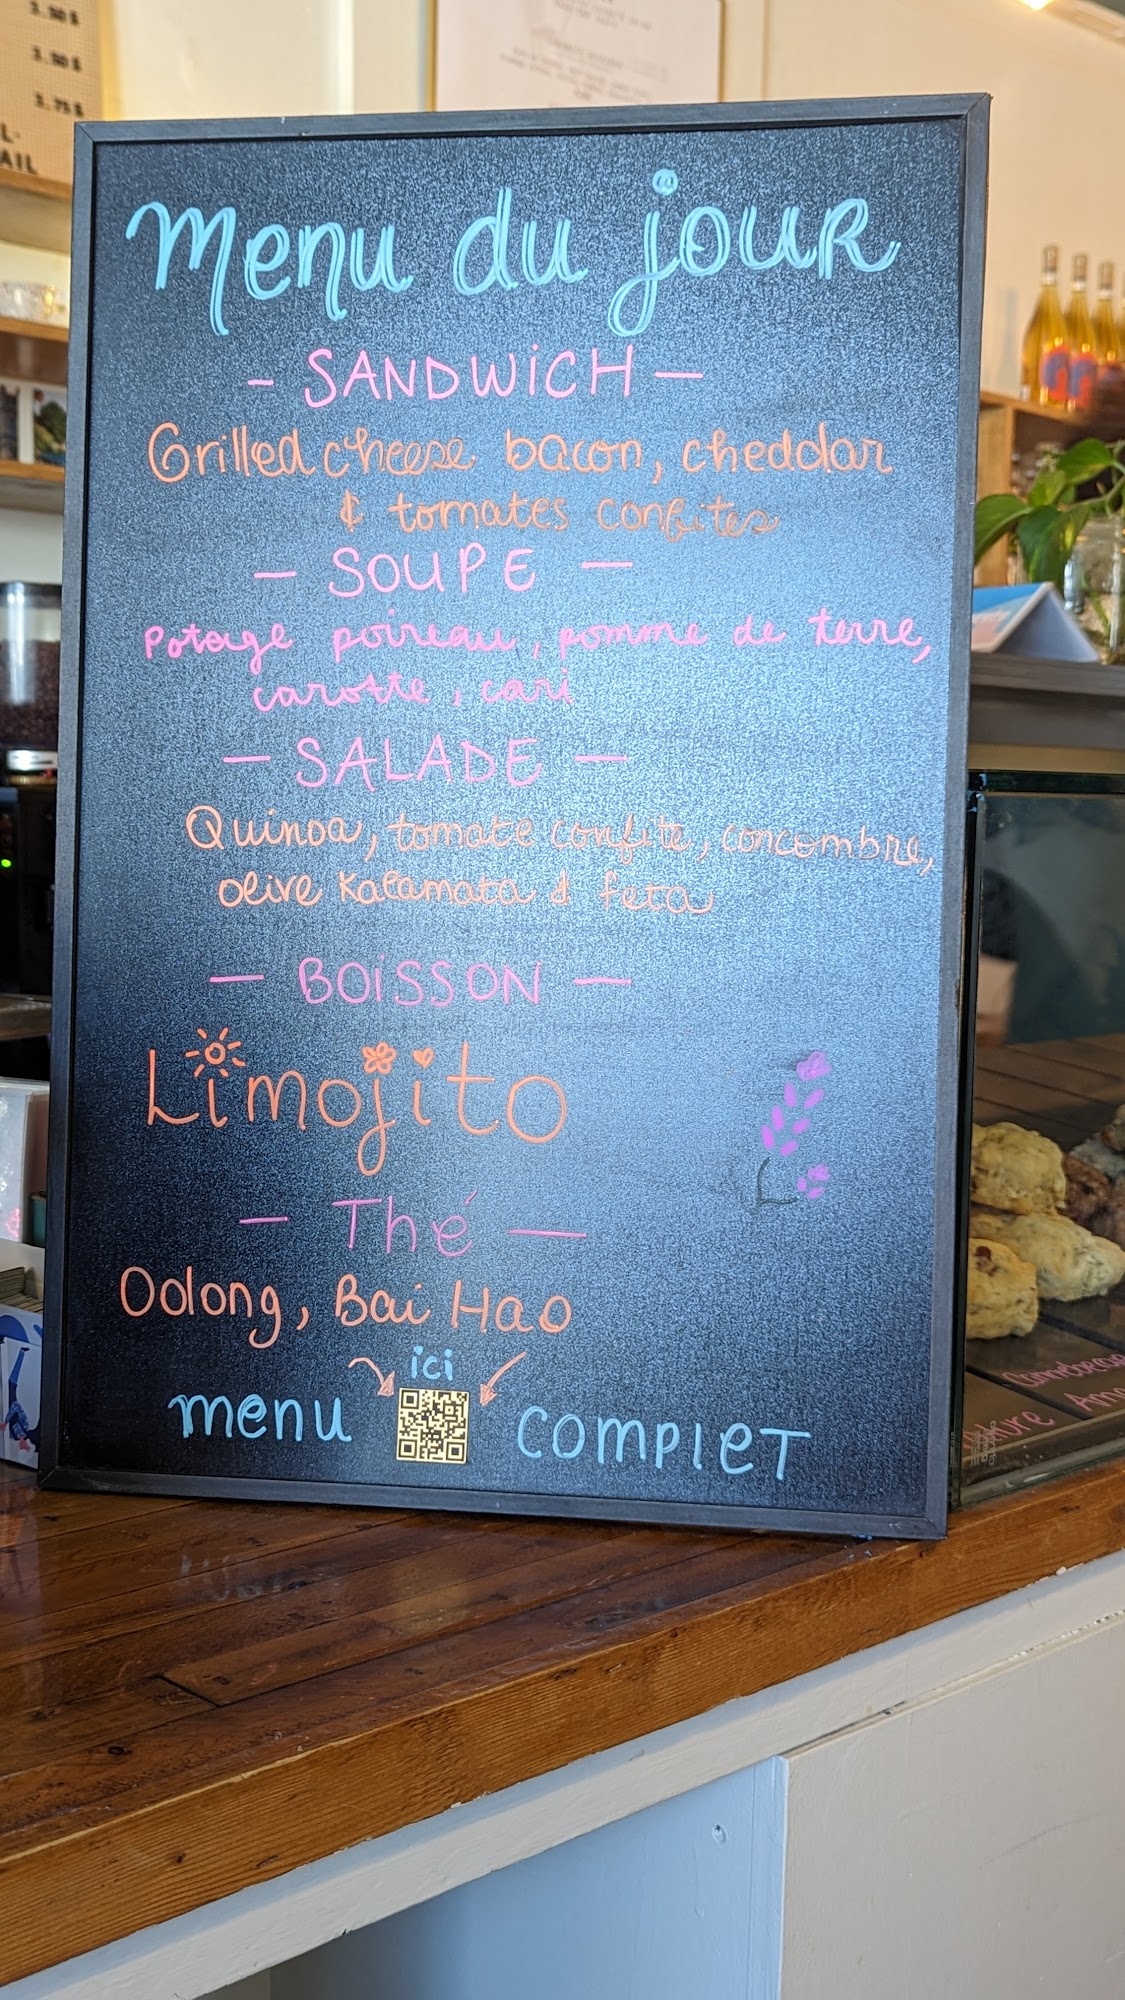 3.50$
3.50$
3.75$
L-
AIL
Menu du jour
- SANDWiCH -
Grilled cheese bacon, cheddar
& tomates confites
- SOUPE -
Potage poireau, pomme de terre,
carotte, cari
- SALADE -
Quinoa, tomate confite, concombre,
olive Kalamata & feta
- BOiSSON -
Limojito
- Thé -
Oolong, Bai Hao
ici
menu complet